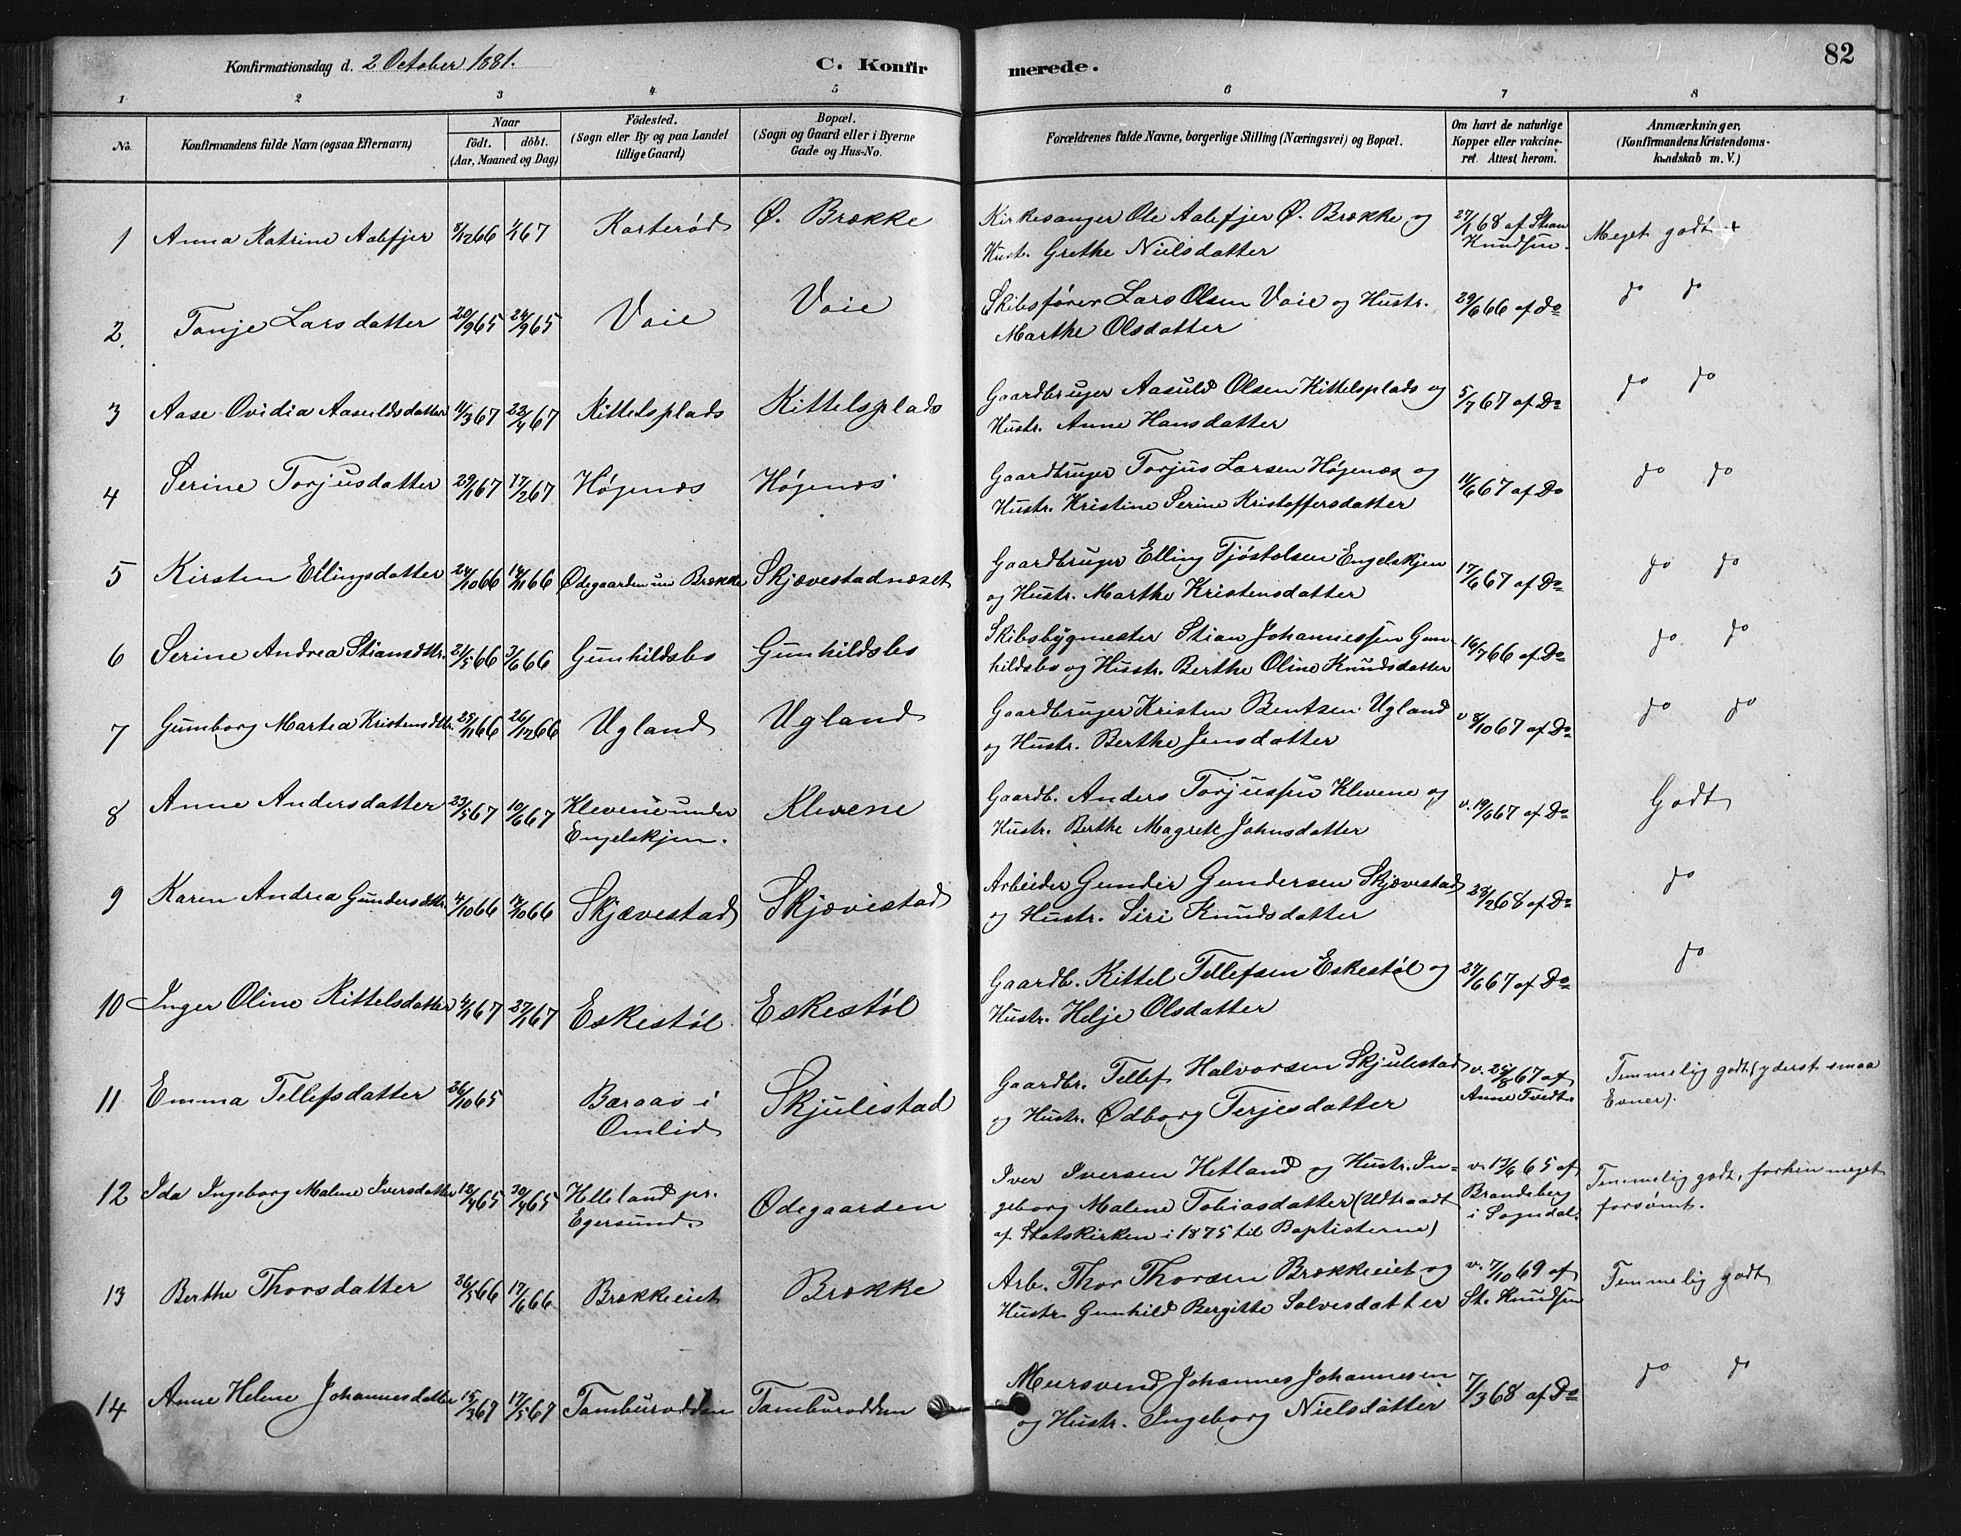 Konfirmationsdag d. 2 October 1881.
C. Konfirmerede.
82
1 2 3 4 5 6 7 8
No.
Konfirmandens fulde Navn (ogsaa Efternavn)
Naar
födt. döbt.
(Aar, Maaned og Dag)
Födested.
(Sogn eller By og paa Landet
tillige Gaard)
Bopæl.
(Sogn og Gaard eller i Byerne
Gade og Hus-No.
Forældrenes fulde Navne, borgerlige Stilling (Næringsvei) og Bopæl.
Om havt de naturlige
Kopper eller vakcine-
ret. Attest herom.
Anmærkninger.
(Konfirmandens Kristendoms-
kundskab m. V.)
1 Anna Katrine Aalefjer 8/12 66 1/1 67 Karterød Ø. Brække
Kirkesanger Ole Aalefjer Ø. Brække og
Hustr. Grethe Nielsdatter
27/1 68 af Stian
Knudsen.
Meget godt
2. Tonje Larsdatter 20/9 65 24/9 65 Voie Voie
Skibsfører Lars Olsen Voie og Hustr.
Marthe Olsdatter
29/6 66 af do
do do
3 Aase Ovidia Aasuldsdatter 11/3 67 22/4 67 Kittelsplads Kittelsplads
Gaardbruger Aasuld Olsen Kittelsplads og
Hustr. Anne Hansdatter
5/7 67 af Do
do do
4 Serine Torjusdatter 29/1 67 17/2 67 Høgenæs Høgenæs
Gaardbruger Torjus Larsen Høgenæs og
Hustr. Kristine Serine Kristoffersdatter
11/6 67 af Do
do do
5 Kirsten Ellingsdatter 24/10 66 66 Ødegaarden un Brække Skjævestadnæset
Gaardbruger Elling Tjøstolsen Engelskjen
og Hustr. Marthe Kristensdatter
17/6 67 af Do
do do
6 Serine Andrea Stiansdtr. 21/5 66 3/6 66 Gunhildsbo Gunhildsbo
Skibsbygmester Stian Johannessen Gun-
hildsbo og Hustr. Berthe Oline Knudsdatter
16/7 66 af Do
do do
7 Gumborg Martea Kristensdtr. 25/11 66 26/12 66 Ugland Ugland
Gaardbruger Kristen Bentsen Ugland
og Hustr. Berthe Jensdatter
v 8/10 67 af Do
do do
8 Anne Andersdatter 23/5 67 10/6 67 Klevene under
Engelskjen.
Klevene
Gaardb. Anders Torjussen Klevene og
Hustr. Berthe Magrete Johnsdatter
v. 19/6 67 af Do
Godt
9 Karen Andrea Gundersdtr. 4/10 66 66 Skjævestad Skjævestad
Arbeider Gunder Gundersen Skjævestad
og Hustr. Siri Knudsdatter
23/2 68 af Do
do
10 Inger Oline Kittelsdatter 4/1 67 27/1 67 Eskestøl Eskestøl
Gaardb. Kittel Tellefsen Eskestøl og
Hustr. Helje Olsdatter
27/6 67 af Do
do
11 Emma Tellefsdatter 26/10 65 Baraas i
Omlid
Skjulestad
Gaardbr. Tellef Halvorsen Skjulestad
og Hustr. Ødborg Terjesdatter
v. 25/8 67 af
Anne Tvedt.
Temmelig godt (yderst smaa
Evner).
12 Ida Ingeborg Malene Iversdatter 18/4 65 30/4 65 Helleland pr.
Egersund.
Ødegaarden
Iver Iversen Hetland og Hustr. In-
geborg Malene Tobiasdatter (Udtraadt
af Statskirken i 1875 til Baptisterne)
v. 13/6 65 af
Brandsberg
i Sogndal.
Temmelig godt, forhen meget
forsømt.
13 Berthe Thorsdatter 26/5 66 17/6 66 Brækkeeiet Brække
Arb. Thor Thorsen Brækkeeiet og
Hustr. Gunhild Bergitte Solvesdatter
v. 7/10 69 af
St. Knudsen
Temmelig godt
14 Anne Helene Johannesdatter 15/3 67 17/5 67 Tamburodden Tamburodden
Mursvend Johannes Johannesen
og Hustr. Ingeborg Nielsdatter
7/3 68 af Do
do do